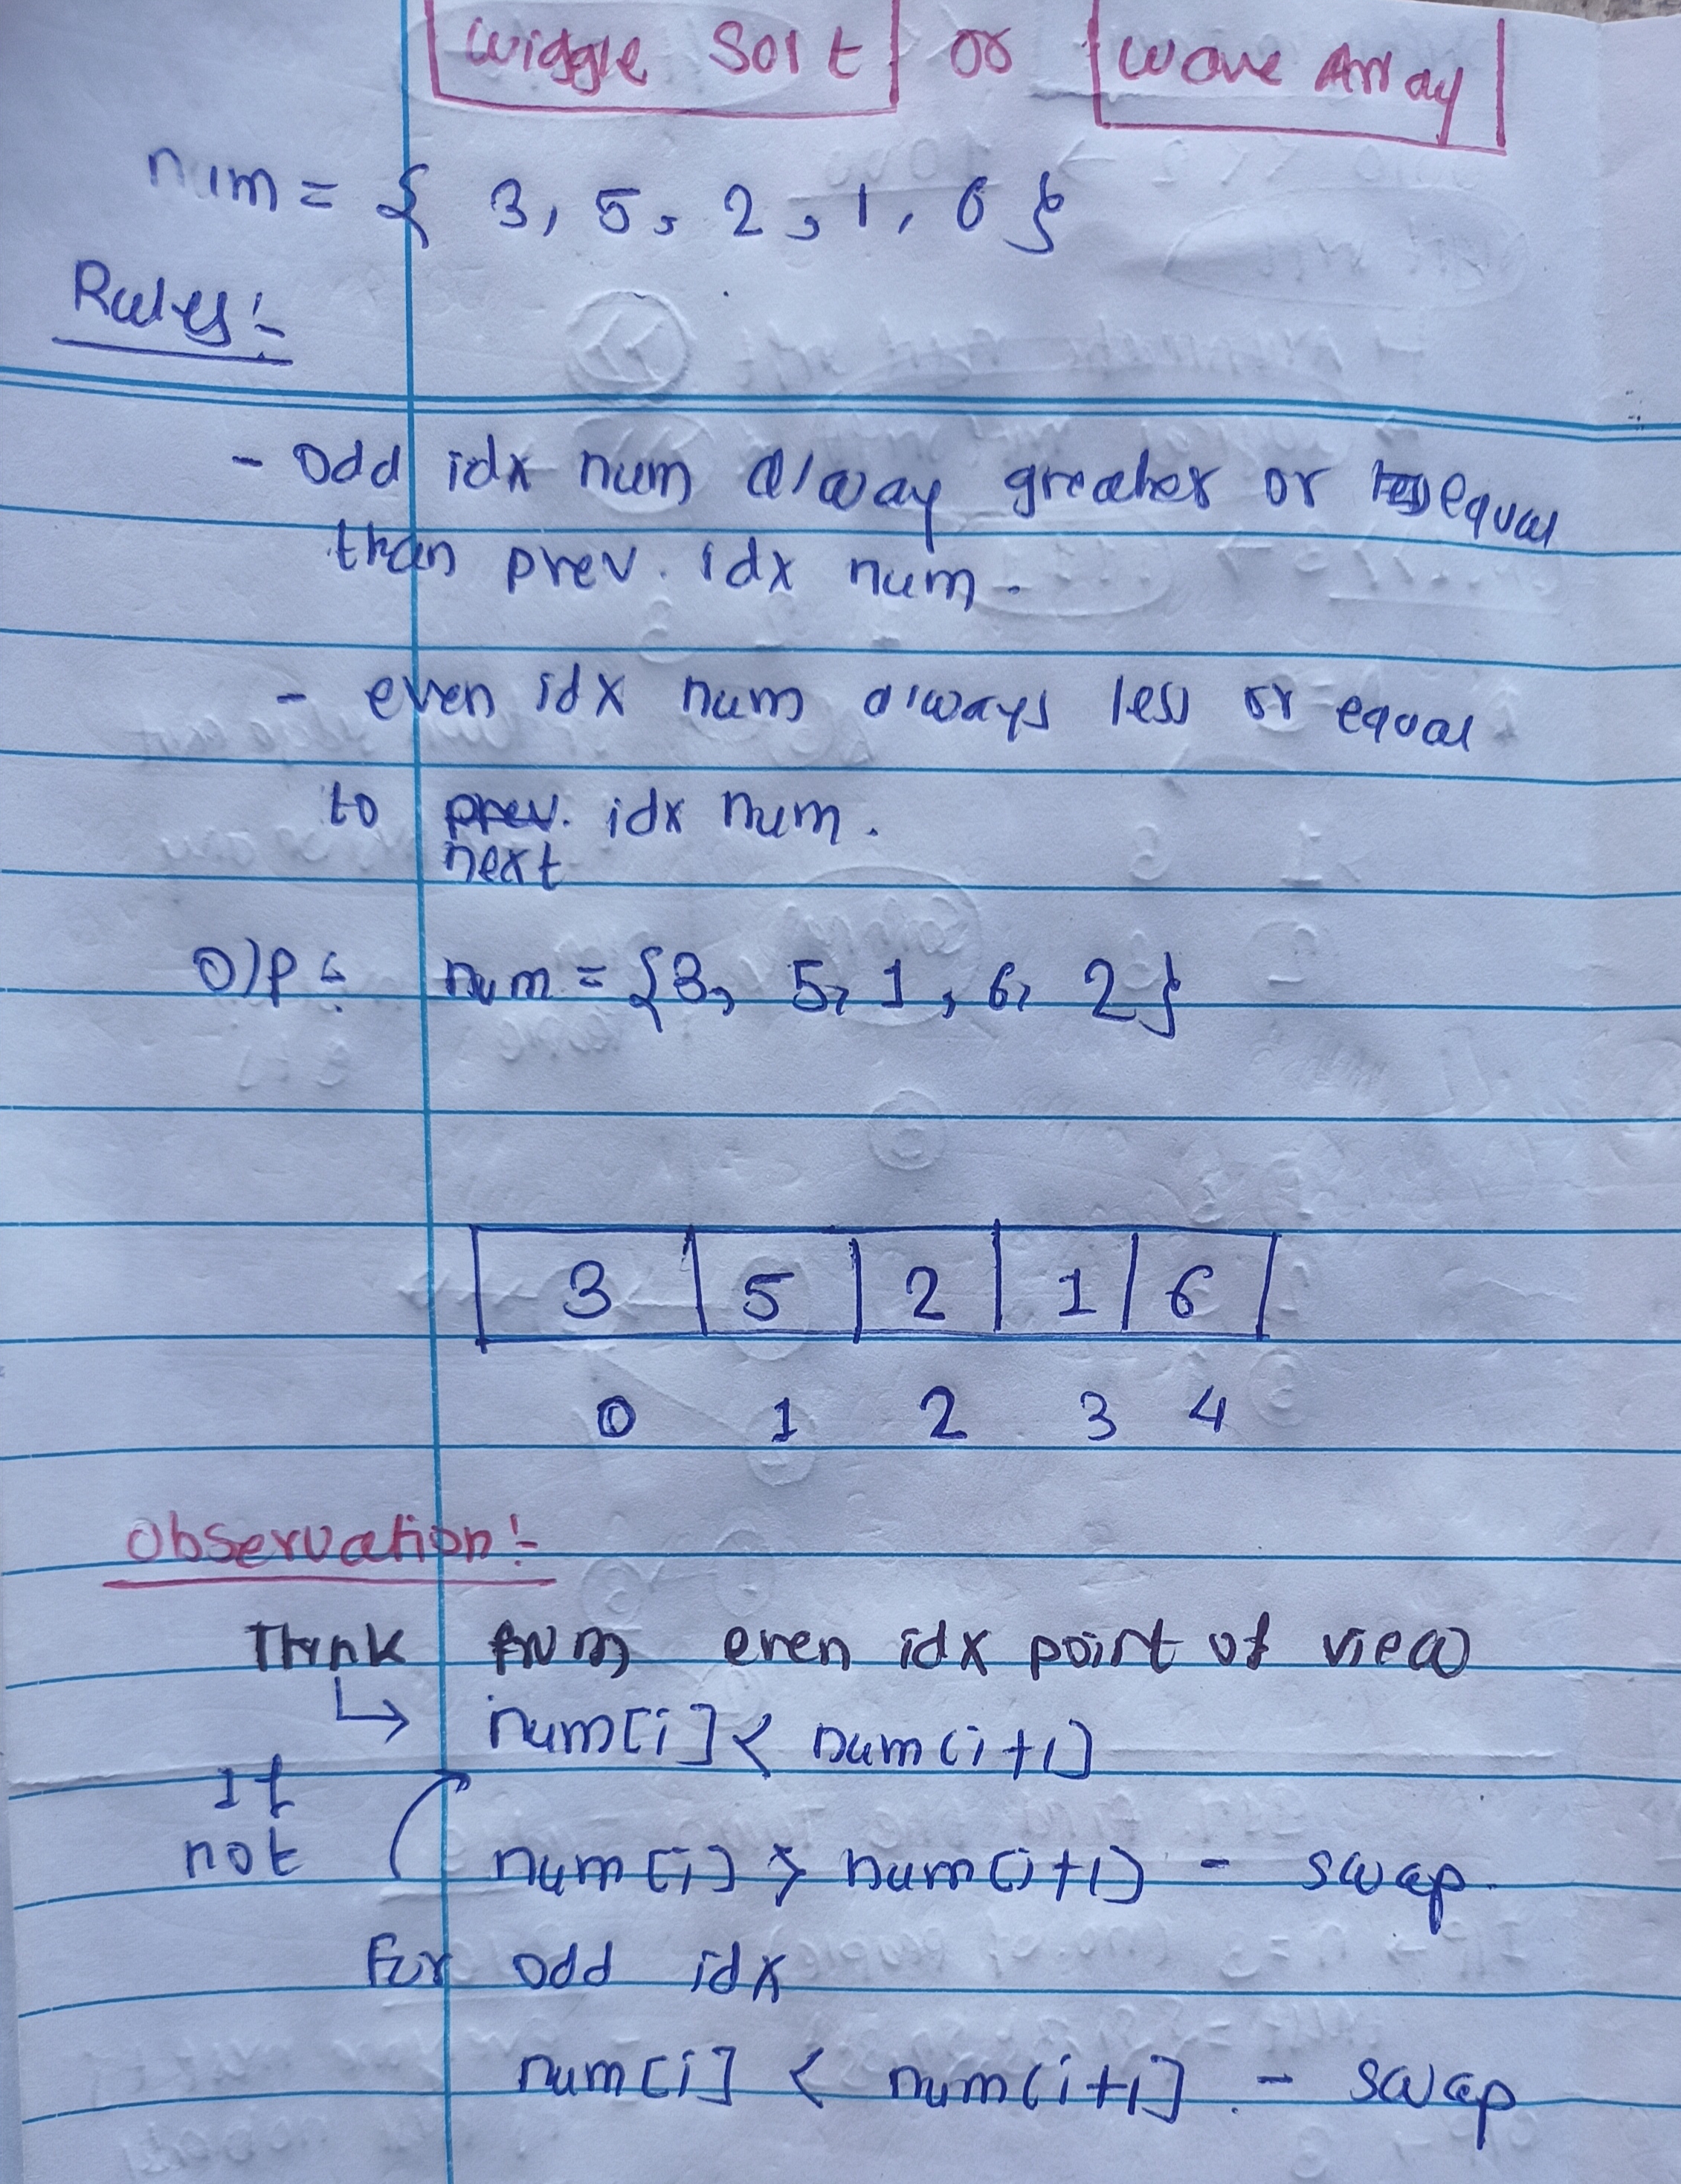 Wiggle Sort or Wave Array
num = { 3, 5, 2, 1, 6 }
Rules :-
- Odd idx num alway greater or equal
than prev. idx num.
- even idx num always less or equal
to prev. idx num.
next
O/P :- num = {3, 5, 1, 6, 2}
3 5 2 1 6
0 1 2 3 4
Observation :-
Think from even idx point of view
↳ num[i] < num(i+1]
If
not num[i] > num(i+1) - swap.
For odd idx
num[i] < num(i+1] - swap